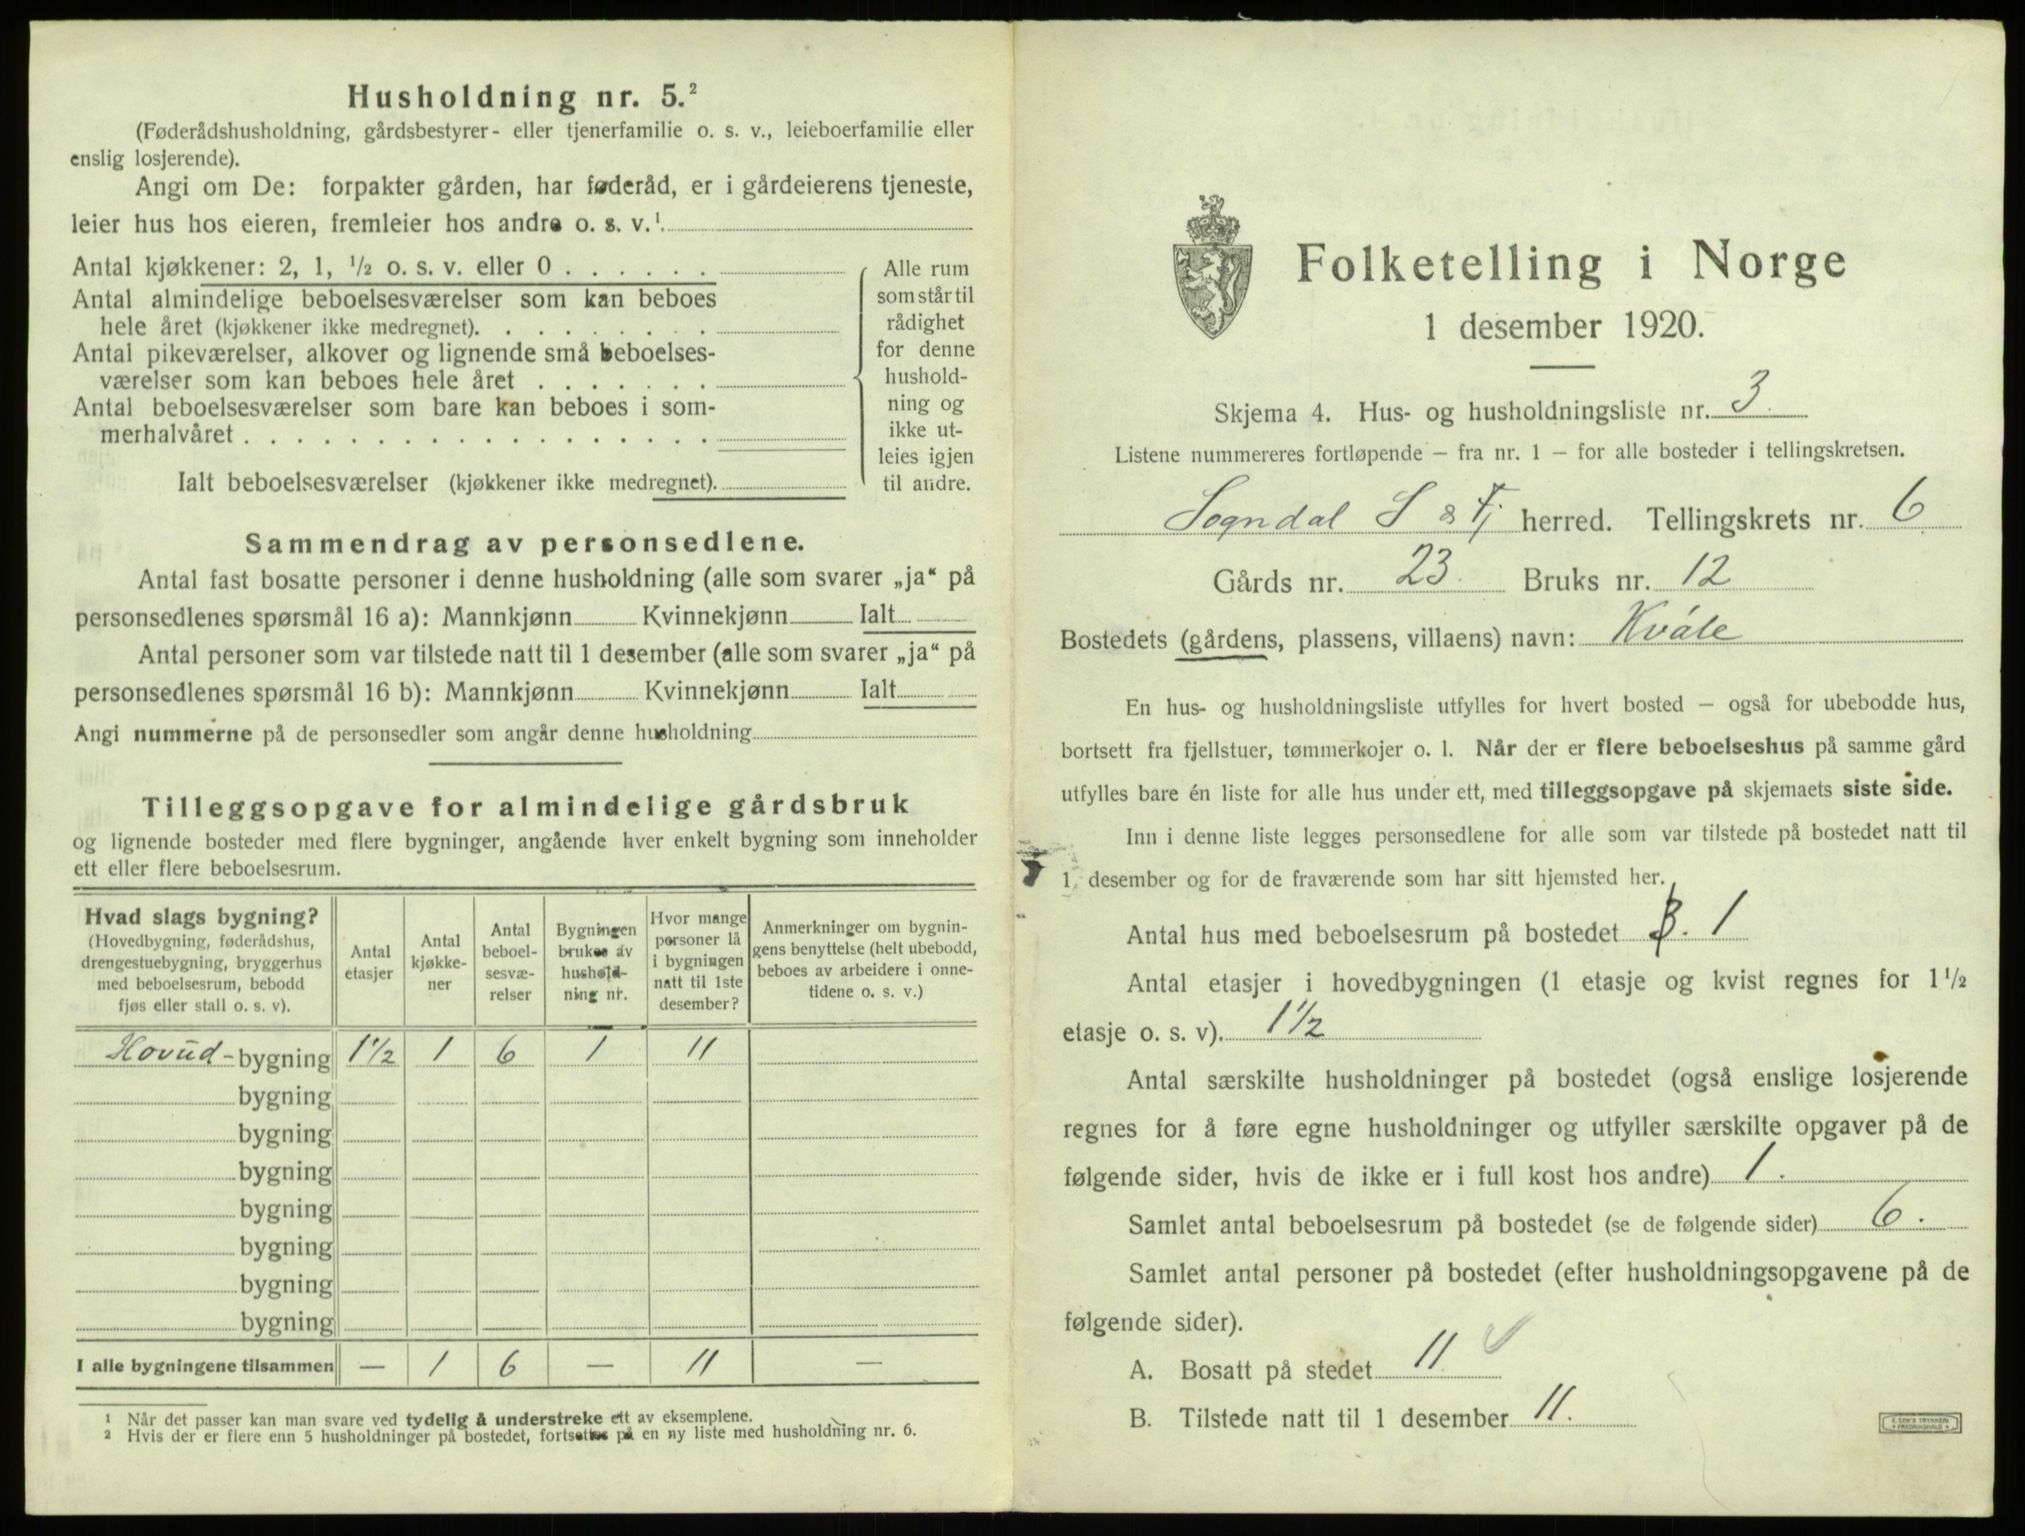 Husholdning nr. 5.²
(Føderådshusholdning, gårdsbestyrer- eller tjenerfamilie o. s. v., leieboerfamilie eller
enslig losjerende).
Angi om De: forpakter gården, har føderåd, er i gårdeierens tjeneste,
leier hus hos eieren, fremleier hos andre o. s. v.¹
Antal kjøkkener: 2, 1, ½ o. s. v. eller 0 . . . . . .
Antal almindelige beboelsesværelser som kan beboes
hele året (kjøkkener ikke medregnet). . . . . . . . .
Antal pikeværelser, alkover og lignende små beboelses-
værelser som kan beboes hele året . . . . . . .
Antal beboelsesværelser som bare kan beboes i som-
merhalvåret . . . . . . . . . . . . . . . . . .
Ialt beboelsesværelser (kjøkkener ikke medregnet).
Alle rum
som står til
rådighet
for denne
hushold-
ning og
ikke ut-
leies igjen
til andre.
Sammendrag av personsedlene.
Antal fast bosatte personer i denne husholdning (alle som svarer „ja“ på
personsedlenes spørsmål 16 a): Mannkjønn Kvinnekjønn Ialt
Antal personer som var tilstede natt til 1 desember (alle som svarer „ja“ på
personsedlenes spørsmål 16 b): Mannkjønn Kvinnekjønn Ialt
Angi nummerne på de personsedler som angår denne husholdning
Tilleggsopgave for almindelige gårdsbruk
og lignende bosteder med flere bygninger, angående hver enkelt bygning som inneholder
ett eller flere beboelsesrum.
Hvad slags bygning?
(Hovedbygning, føderådshus,
drengestuebygning, bryggerhus
med beboelsesrum, bebodd
fjøs eller stall o. s. v).
Antal
etasjer
Antal
kjøkke-
ner
Antal
beboel-
sesvæ-
relser
Bygningen
brukes av
hushold-
ning nr.
Hvor mange
personer lå
i bygningen
natt til 1ste
desember?
Anmerkninger om bygnin-
gens benyttelse (helt ubebodd,
beboes av arbeidere i onne-
tidene o. s. v.)
Hovud-bygning 1½ 1 6 1 11
bygning
bygning
bygning
bygning
bygning
bygning
bygning
I alle bygningene tilsammen — 1 6 — 11 —
¹ Når det passer kan man svare ved tydelig å understreke ett av eksemplene.
² Hvis der er flere enn 5 husholdninger på bostedet, fortsettes på en ny liste med husholdning nr. 6.
Folketelling i Norge
1 desember 1920.
Skjema 4. Hus- og husholdningsliste nr. 3.
Listene nummereres fortløpende — fra nr. 1 — for alle bosteder i tellingskretsen.
Sogndal S & Fj herred. Tellingskrets nr. 6
Gårds nr. 23. Bruks nr. 12
Bostedets (gårdens, plassens, villaens) navn: Kvåle
En hus- og husholdningsliste utfylles for hvert bosted — også for ubebodde hus,
bortsett fra fjellstuer, tømmerkojer o. l. Når der er flere beboelseshus på samme gård
utfylles bare én liste for alle hus under ett, med tilleggsopgave på skjemaets siste side.
Inn i denne liste legges personsedlene for alle som var tilstede på bostedet natt til
1. desember og for de fraværende som har sitt hjemsted her.
Antal hus med beboelsesrum på bostedet 1
Antal etasjer i hovedbygningen (1 etasje og kvist regnes for 1½
etasje o. s. v). 1½
Antal særskilte husholdninger på bostedet (også enslige losjerende
regnes for å føre egne husholdninger og utfyller særskilte opgaver på de
følgende sider, hvis de ikke er i full kost hos andre) 1.
Samlet antal beboelsesrum på bostedet (se de følgende sider) 6.
Samlet antal personer på bostedet (efter husholdningsopgavene på de
følgende sider).
A. Bosatt på stedet 11
B. Tilstede natt til 1 desember 11.